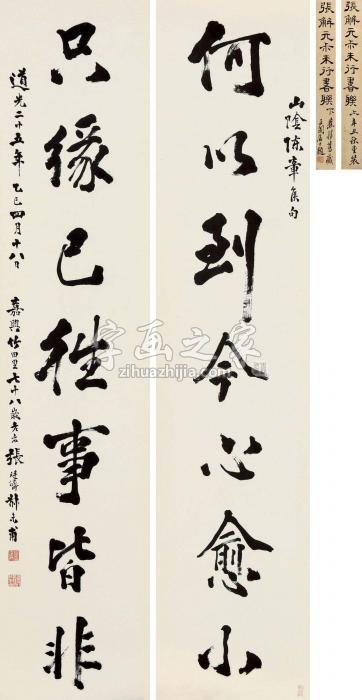 張解元尗未行書聯 上
張解元尗未行書聯 下
山陰陳章侯句
何以到今心愈小
只緣已往事皆非
道光二十五年乙巳四月十八日
嘉興竹田里七十八歲老者張廷濟尗未甫
字画之家
zihuazhijia.com